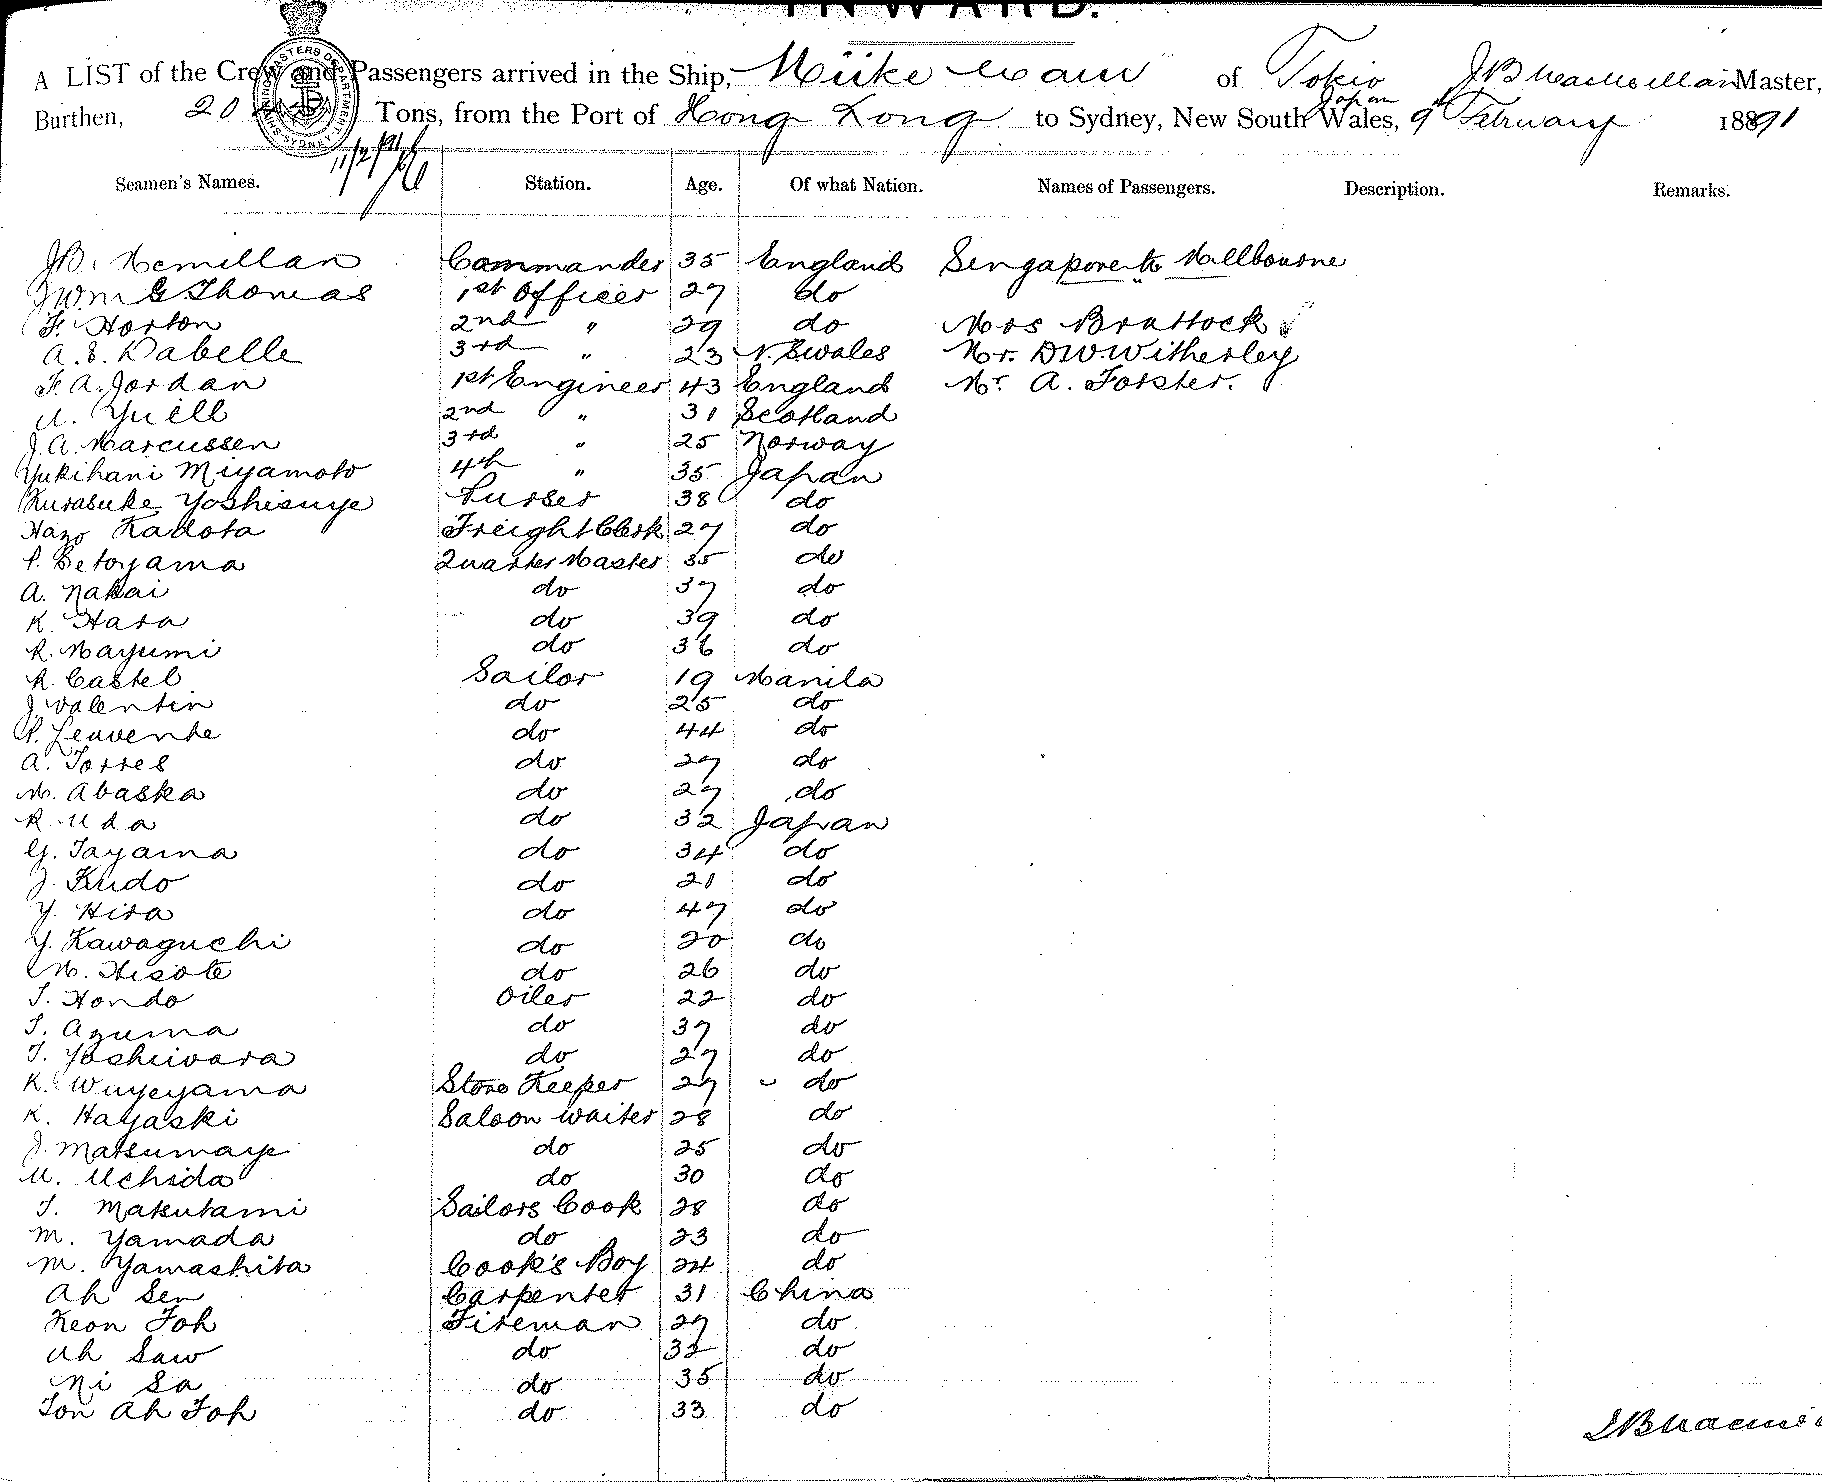 INWARD.
A LIST of the Crew and Passengers arrived in the Ship, Miike Maru of Tokio Japan J B Macmillan Master,
Burthen, 20 Tons, from the Port of Hong Kong to Sydney, New South Wales, 9th February 1891
Seamen's Names. Station. Age. Of what Nation. Names of Passengers. Description. Remarks.
J.B. Mcmillan Commander 35 England Singapore to Mellbourne
Wm G Thomas 1st Officer 27 do
F. Horton 2nd " 29 do Mrs Brattock
A.E. Dabelle 3rd " 23 N. S Wales Mr. D W Witherley
F. A. Jordan 1st Engineer 43 England Mr. A. Forster.
U. Yuell 2nd " 31 Scotland
J. A. Marcussen 3rd " 25 Norway
Yukihani Miyamoto 4th " 35 Japan
Kurasuke Yoshisuye Purser 38 do
Hazo Kadota Freight Clerk 27 do
S. Setoyama Quarter Master 35 do
A. Nakai do 37 do
K. Hara do 39 do
R. Mayumi do 36 do
R. Castel Sailor 19 Manila
J. Valentin do 25 do
P. Leuvente do 44 do
A. Torres do 27 do
M. Abaska do 27 do
R. Uda do 32 Japan
G. Tayama do 34 do
J. Kudo do 21 do
Y. Hira do 47 do
Y. Kawaguchi do 20 do
M. Hisote do 26 do
T. Hondo Oiler 22 do
T. Azuma do 37 do
T. Yoshiwara do 27 do
K. Wuyeyama Store Keeper 27 do
K. Hayaski Saloon Waiter 28 do
J. Matsumaye do 25 do
U. Uchida do 30 do
T. Matsutami Sailors Cook 28 do
M. Yamada do 23 do
M. Yamashita Cook's Boy 24 do
Ah Sen Carpenter 31 China
Keon Foh Fireman 27 do
Ah Saw do 32 do
Ni Sa do 35 do
Ton Ah Foh do 33 do
J B Macmi